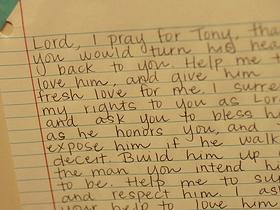 Lord, I pray for Tony, tha
you would turn his hea
back to you. Help me t
love him, and give him
fresh love for me. I surre
my rights to you as Lo
and ask you to bless h
as he honors you, and
expose him if he walk
deceit. Build him up
the man you intend hi
to be. Help me to su
and respect him. I as
your help to love him